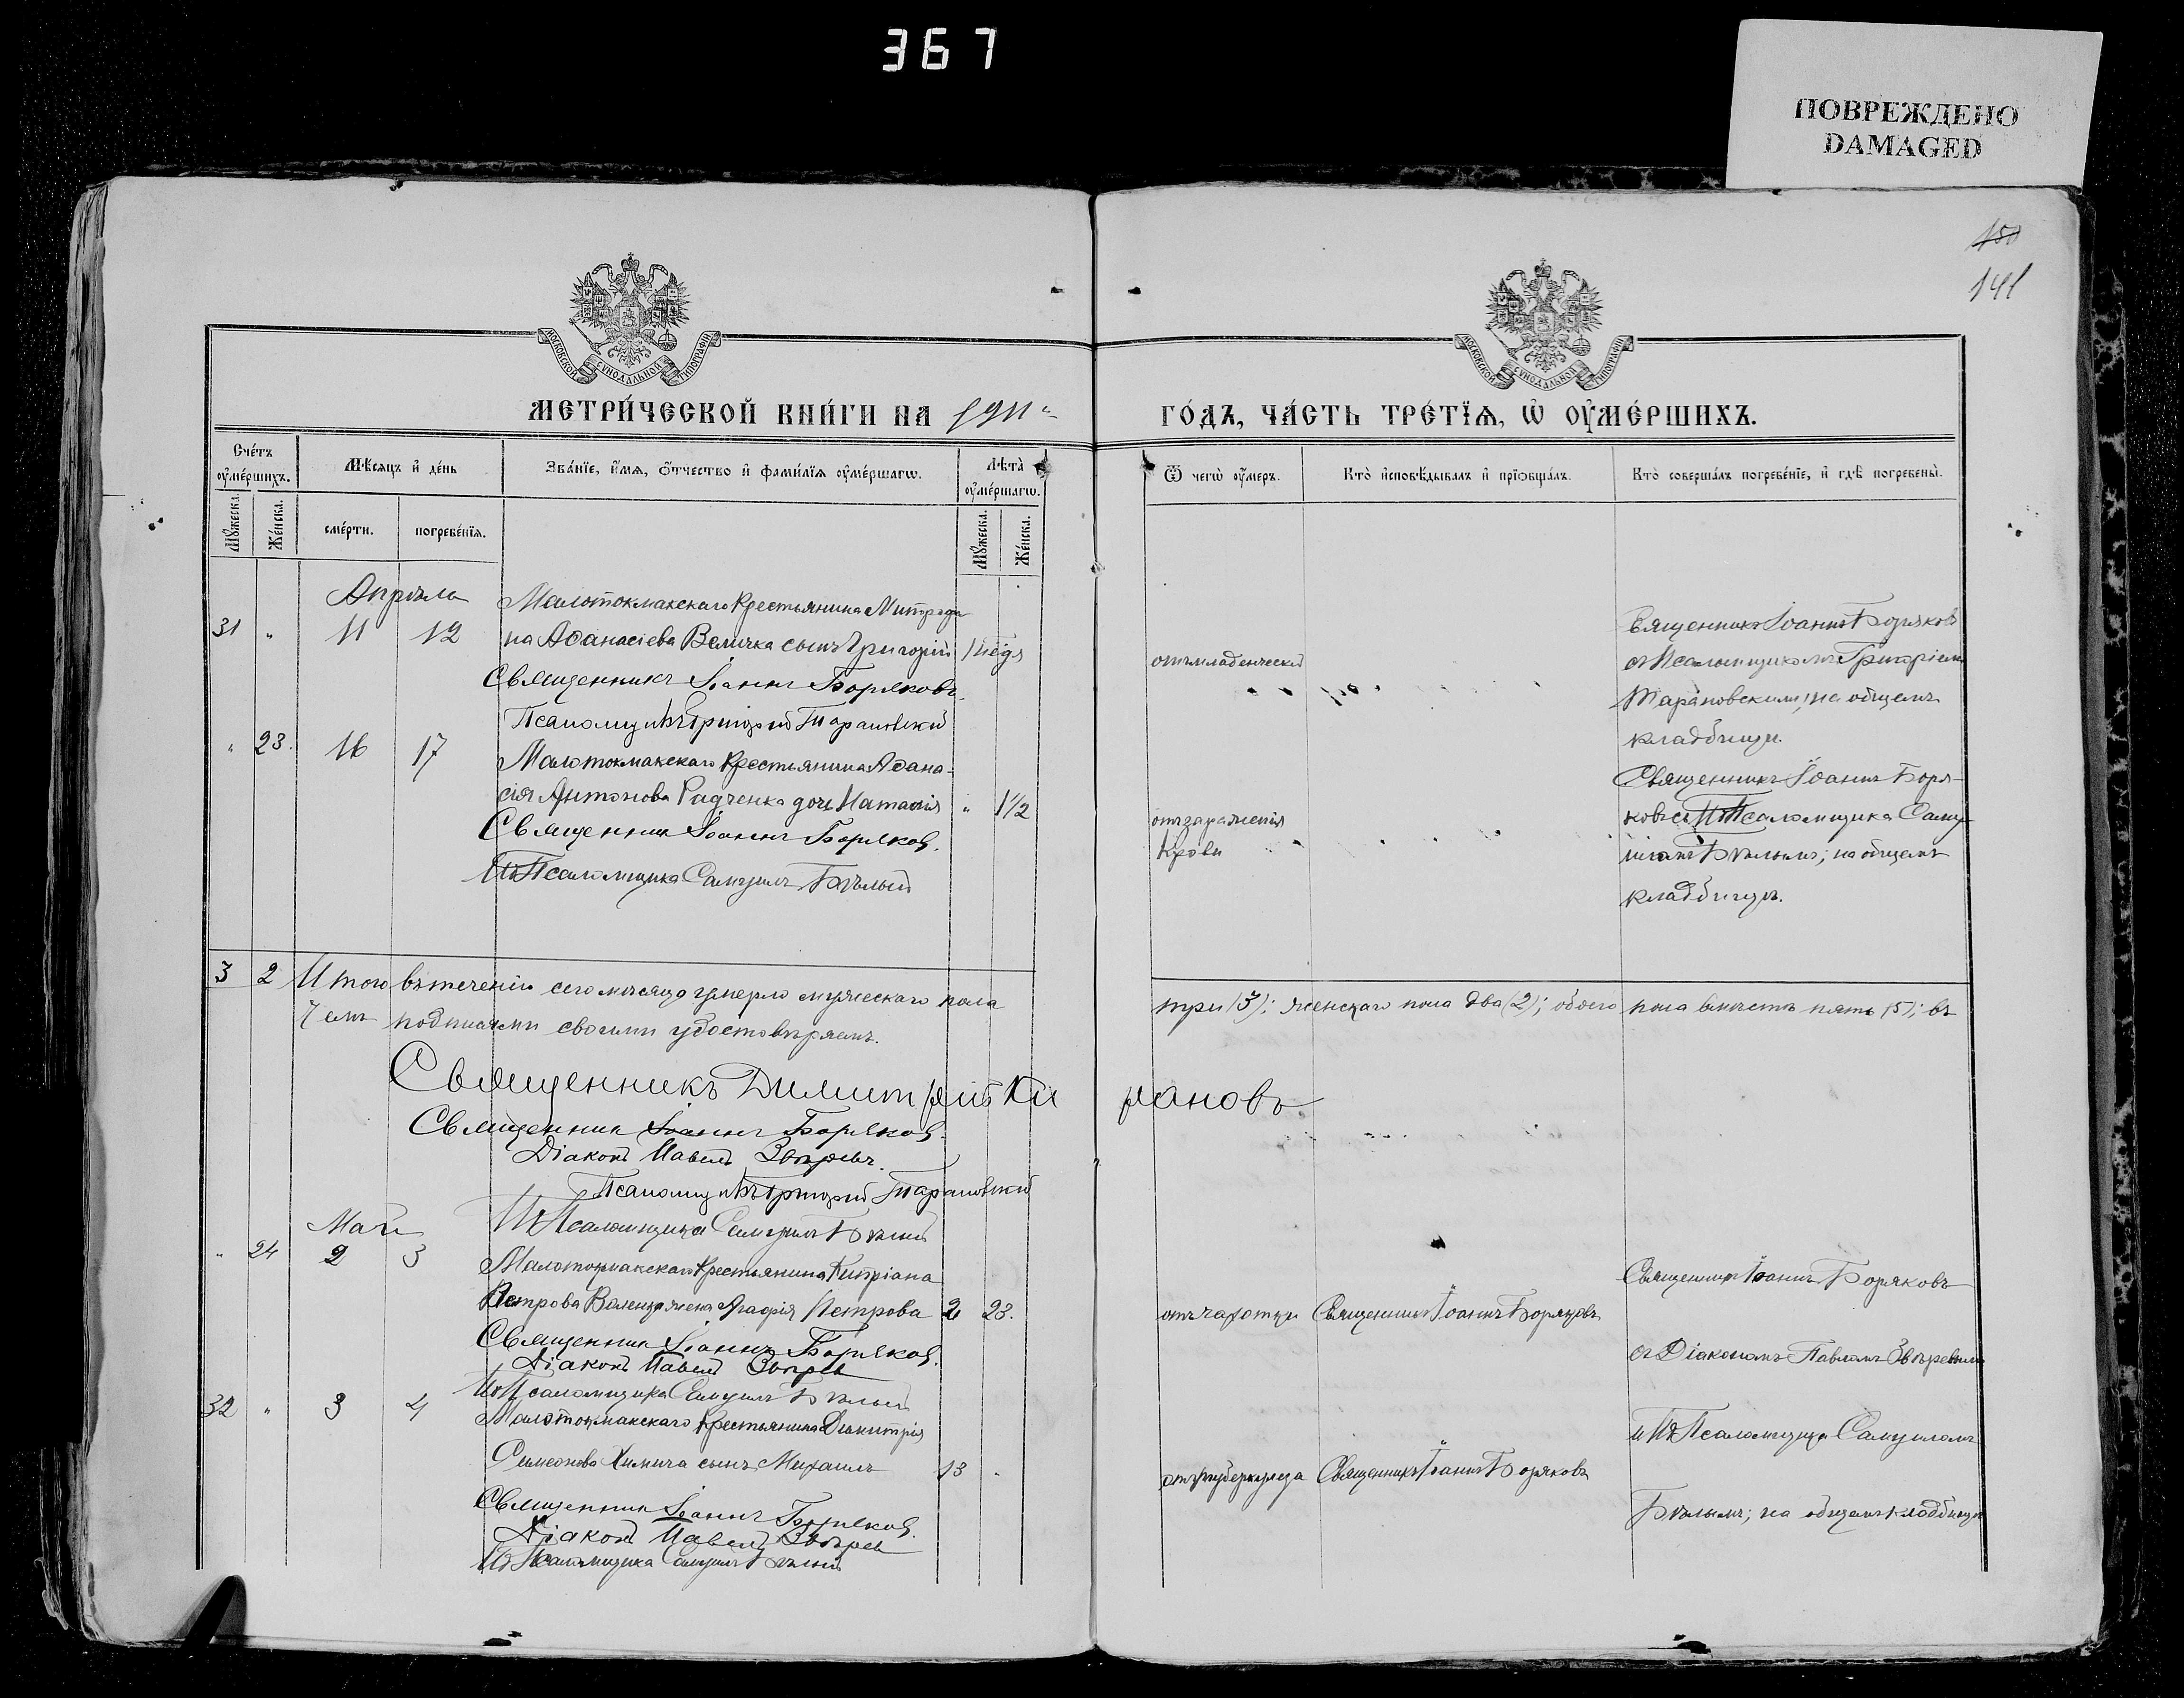 367
ПОВРЕЖДЕНО
DAMAGED
150
141
МОСКОВСКОЙ СѴНОДАЛЬНОЙ ТИПОГРАФІИ
МОСКОВСКОЙ СѴНОДАЛЬНОЙ ТИПОГРАФІИ
МЕТРИ́ЧЕСКОЙ КНИ́ГИ НА 1911 ГО́ДЪ, ЧА́СТЬ ТРЕ́ТЇѦ, Ѡ҆ ОУ҆МЕ́РШИХЪ.
Сче́тъ оу҆ме́ршихъ.
Мꙋ́жеска.
Же́нска.
Мѣ́сѧцъ и҆ де́нь
сме́рти.
погребе́нїѧ.
Зва́нїе, и҆́мѧ, ѻ҆́тчество и҆ фами́лїѧ оу҆ме́ршагѡ.
Лѣ́та оу҆ме́ршагѡ.
Мꙋ́жеска.
Же́нска.
Ѿ чегѡ̀ оу҆́меръ.
Кто̀ и҆сповѣ́дывалъ и҆ прїѻбща́лъ.
Кто̀ соверша́лъ погребе́нїе, и҆ гдѣ̀ погребены̀.
Апрѣля
31 " 11 12
Малотокмакскаго Крестьянина Митрофа
на Аѳанасіева Величка сынъ Григорій 1 нед
Священникъ Іоаннъ Боряковъ.
Псаломщикъ Григорій Тарановскій
отъ младенческой
Священникъ Іоаннъ Боряковъ
съ Псаломщикомъ Григоріемъ
Тарановскимъ; на общемъ
кладбищѣ.
" 23. 16 17
Малотокмакскаго Крестьянина Аѳана-
сія Антонова Радченка дочь Наталія " 1 1/2
Священник Іоаннъ Боряков.
И д Псаломщика Самуилъ Бѣлый
отъ зараженія
крови
Священникъ Іоаннъ Боря-
ковъ съ И д Псаломщика Саму-
иломъ Бѣлымъ; на общемъ
кладбищѣ.
3 2 Итого въ теченіи сего мѣсяца умерло мужескаго пола три (3); женскаго пола два (2); обоего пола вмѣстѣ пять (5); въ
чемъ подписями своими удостовѣряемъ.
Священникъ Димитрій Ки рановъ
Священник Іоаннъ Боряков.
Діаконъ Павелъ Звѣревъ.
Псаломщикъ Григорій Тарановскій
И д Псаломщика Самуилъ Бѣлый
Май
" 24 2 3
Малотокмакскаго Крестьянина Кипріана
Петрова жена Агафія Петрова 23.
Священник Іоаннъ Боряков.
Діаконъ Павелъ Звѣрев
И д Псаломщика Самуилъ Бѣлый
отъ чахотки Священникъ Іоаннъ Боряковъ
Священникъ Іоаннъ Боряковъ
съ Діакономъ Павломъ Звѣревымъ
и И д Псаломщика Самуиломъ
Бѣлымъ; на общемъ кладбищѣ
32 " 3 4
Малотокмакскаго Крестьянина Димитрія
Симеонова Химича сынъ Михаилъ 13 "
Священник Іоаннъ Боряков.
Діаконъ Павелъ Звѣрев
И д Псаломщика Самуилъ Бѣлый
отъ туберкулеза Священникъ Іоаннъ Боряковъ